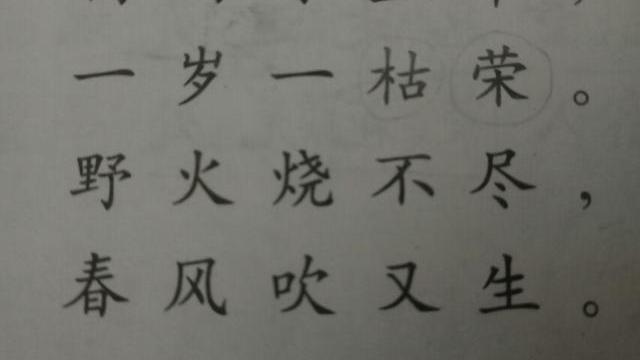 一岁一枯荣。
野火烧不尽,
春风吹又生。